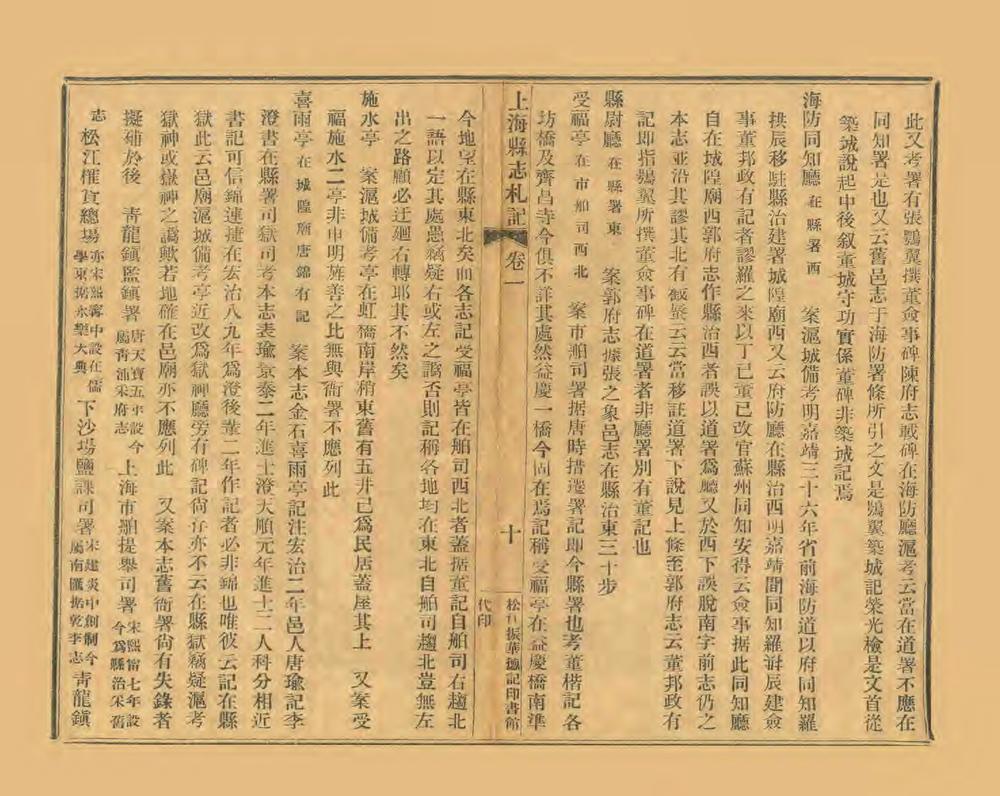 此又考署有張鶚翼撰董僉事碑陳府志載碑在海防廳滬考云當在道署不應在
同知署是也又云舊邑志于海防署條所引之文是鶚翼築城記榮光檢是文首從
築城說起中後叙董城守功實係董碑非築城記焉
海防同知廳在縣署西 案滬城備考明嘉靖三十六年省前海防道以府同知羅
拱辰移駐縣治建署城隍廟西又云府防廳在縣治西明嘉靖間同知羅拱辰建僉
事董邦政有記者謬羅之來以丁巳董已改官蘇州同知安得云僉事据此同知廳
自在城隍廟西郭府志作縣治西者誤以道署爲廳又於西下誤脫南字前志仍之
本志並沿其謬其北有 云云當移註道署下說見上條至郭府志云董邦政有
記即指鶚翼所撰董僉事碑在道署者非廳署別有董記也
縣尉廳在縣署東 案郭府志據張之象邑志在縣治東三十步
受福亭在市舶司西北 案市舶司署据唐時措遷署記即今縣署也考董楷記各
坊橋及齊昌寺今俱不詳其處然益慶一橋今尚在焉記稱受福亭在益慶橋南準
上海縣志札記 卷一 十 松江振華德記印書館代印
今地望在縣東北矣而各志記受福亭皆在舶司西北者蓋据董記自舶司右趨北
一語以定其處愚竊疑右或左之譌否則記稱各地均在東北自舶司趨北豈無左
出之路顧必迂廻右轉耶其不然矣
施水亭 案滬城備考亭在虹橋南岸稍東舊有五井已爲民居蓋屋其上 又案受
福施水二亭非申明旌善之比無與衙署不應列此
喜雨亭在城隍廟唐錦有記 案本志金石喜雨亭記注宏治二年邑人唐瑜記李
澄書在縣署司獄司考本志表瑜景泰二年進士澄天順元年進士二人科分相近
書記可信錦連捷在宏治八九年爲澄後輩二年作記者必非錦也唯彼云記在縣
獄此云邑廟滬城備考亭近改爲獄神廳旁有碑記尙存亦不云在縣獄竊疑滬考
獄神或嶽神之譌歟若地確在邑廟亦不應列此 又案本志舊衙署尙有失錄者
擬補於後 青龍鎭監鎭署唐天寶五年設今屬青浦宋府志 上海市舶提舉司署宋熙甯七年設今爲縣治宋舊
志 松江榷貨總場亦宋熙甯中設在儒學東据永樂大典 下沙場鹽課司署宋建炎中創制今屬南匯据乾李志 青龍鎭